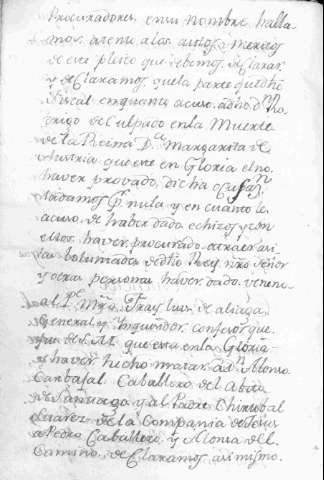 Procuradores en su nombre halla-
mos atento a los autos y meritos
de este pleito que debemos declarar
y declaramos que la parte del dho
fiscal en quanto acuso a dho Dn Ro-
drigo de culpado en la Muerte
de la Reina Da Margarita de
Austria que este en Gloria el no
haver provado dicha
y en cuanto le
acuso de haber dado echizos y con
ellos haver procurado atraer asi
las voluntades del dho Rey nro Señor
y otras personas haver dado veneno
al Pe Mro Fray Luis de aliaga
General Inquisidor confesor que
fue de S.M. que esta en la Gloria
y haver hecho matar a Dn Alonso
Carbajal Caballero del Abito
de Santiago y al Padre Christobal
Suarez de la Compania de Jesus
a Pedro Caballero y Alonso del
Camino, declaramos asimismo